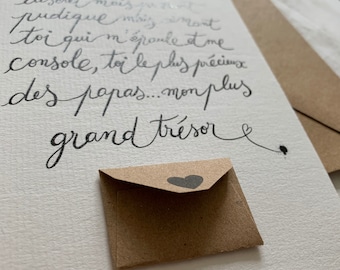 pudique mais
toi qui m'épaule et me
console, toi le plus précieux
des papas...mon plus
grand trésor